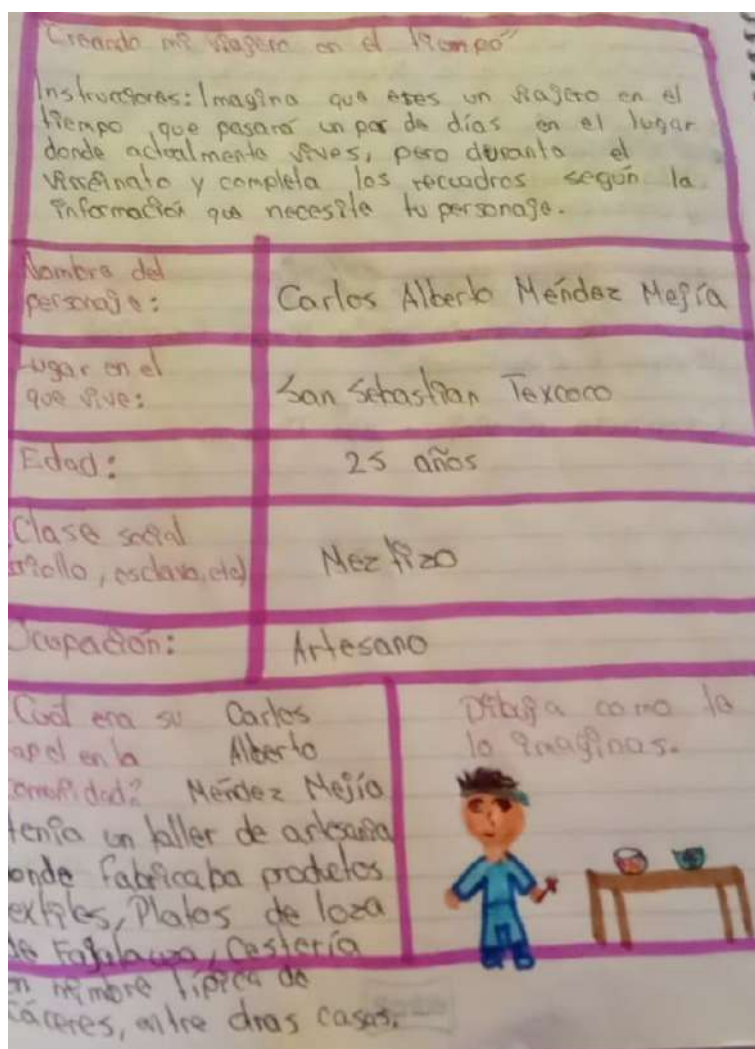 "Creando mi viajero en el tiempo"
Instrucciones: Imagina que eres un viajero en el
tiempo que pasará un par de días en el lugar
donde actualmente vives, pero durante el
virreinato y completa los recuadros según la
información que necesite tu personaje.
Nombre del
personaje:
Carlos Alberto Méndez Mejía
Lugar en el
que vive:
San Sebastian Texcoco
Edad:
25 años
Clase social
criollo, esclavo, etc)
Meztizo
Ocupación:
Artesano
Cuál era su
papel en la
comunidad?
Carlos
Alberto
Méndez Mejía
tenía un taller de artesanía
donde fabricaba productos
textiles, Platos de loza
de Fajalauza, Cestería
en mimbre típica de
Cáceres, entre otras cosas.
Dibuja como te
lo imaginas.